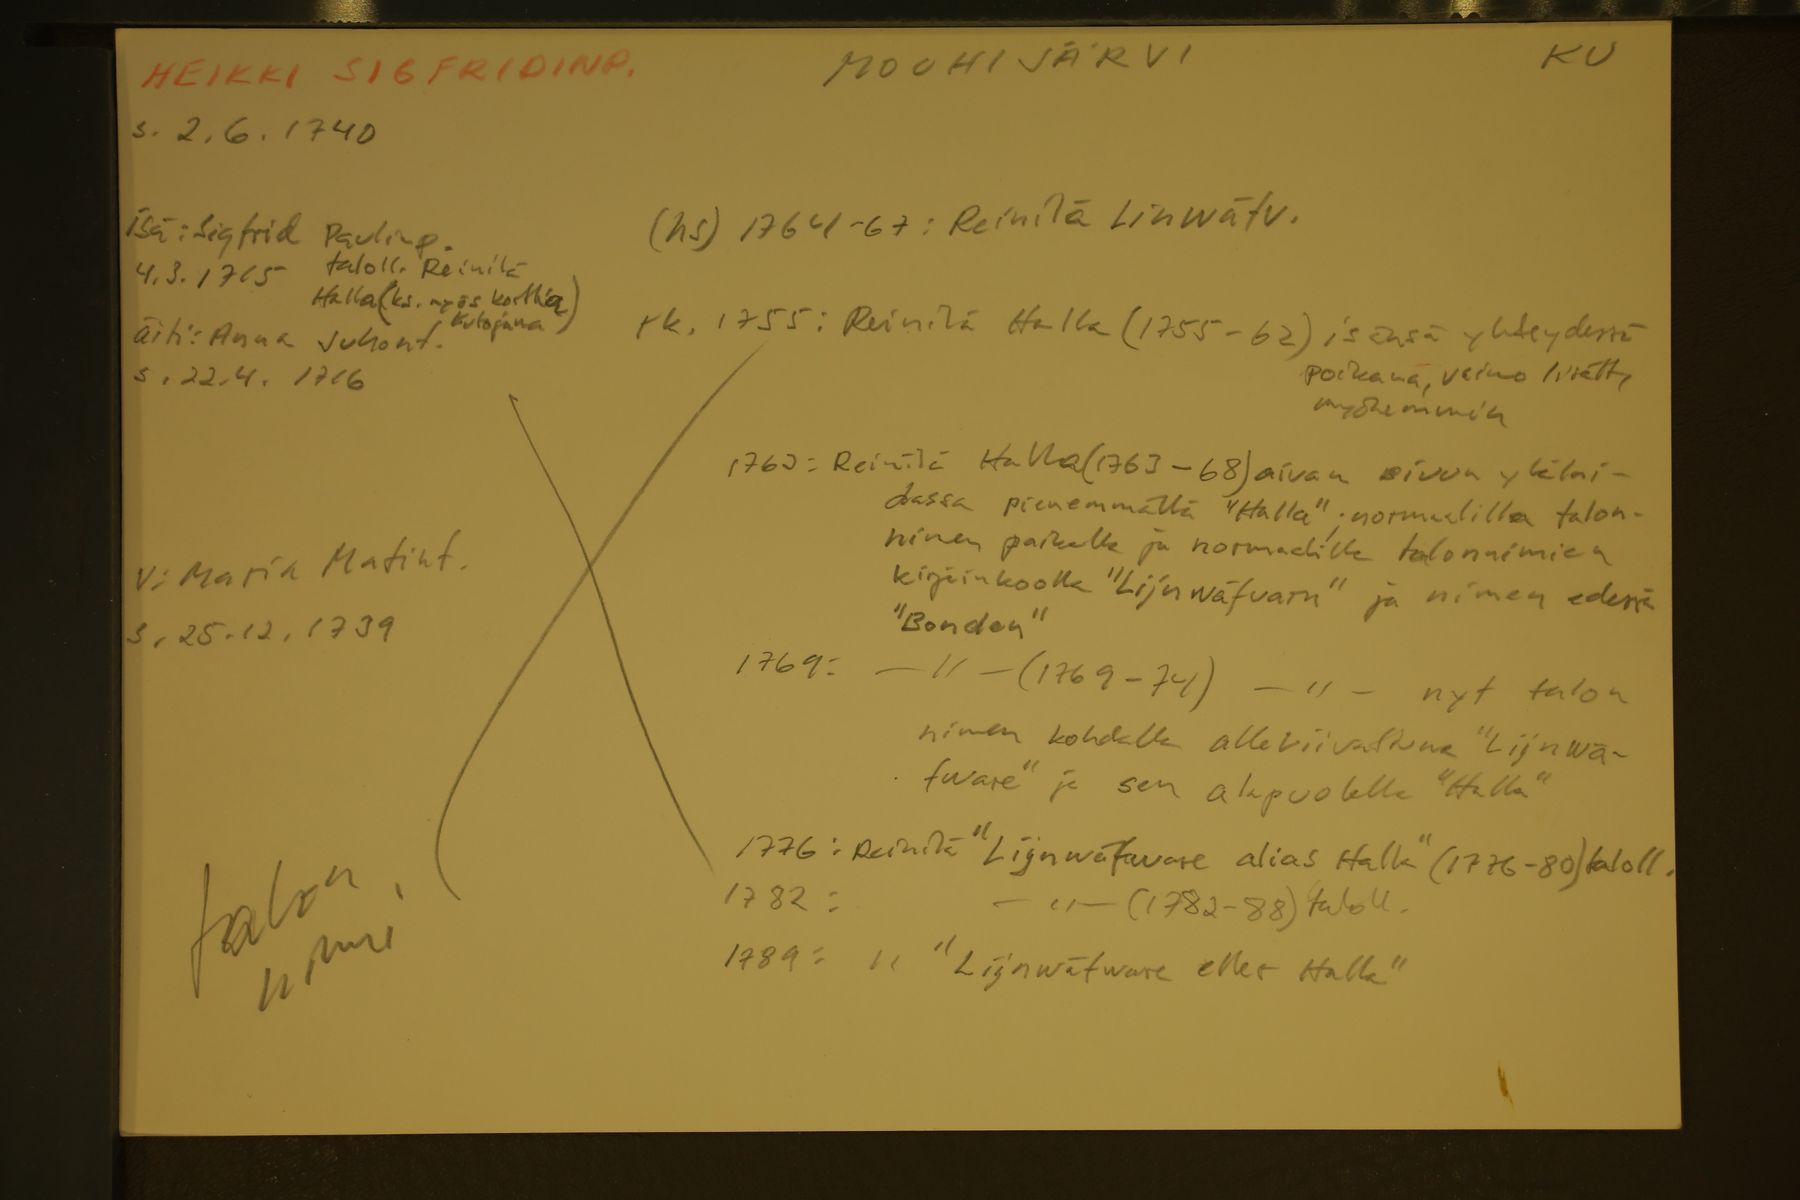 HEIKKI SIGFRIDINP. MOUHIJÄRVI KU
s. 2.6.1740
Isä: Sigfrid Paulinp.
4.3.1715 taloll. Reinilä
Halla (ks. myös korttia
Kutojana)
äiti: Anna Juhont.
s. 22.4. 1716
V: Maria Matint.
s. 25.12.1739
talon
nimi!
(hs) 1764-67: Reinilä Linwätv.
rk. 1755: Reinilä Halla (1755-62) isänsä yhteydessä
poikana, vaimo lisätty
myöhemmin
1763: Reinilä Halla (1763-68) aivan sivun ylälai-
dassa pienemmällä "Halla"; normaalilla talon-
nimen paikalla ja normaalilla talonnimien
kirjainkoolla "Lijnwätvarn" ja nimen edessä
"Bonden"
1769: -"- (1769-74) -"- nyt talon
nimen kohdalla alleviivattuna "Lijnwä-
tware" ja sen alapuolella "Halla"
1776: Reinilä "Lijnwätware alias Halla" (1776-80) taloll.
1782: -"- (1782-88) taloll.
1789: " "Lijnwätware eller Halla"